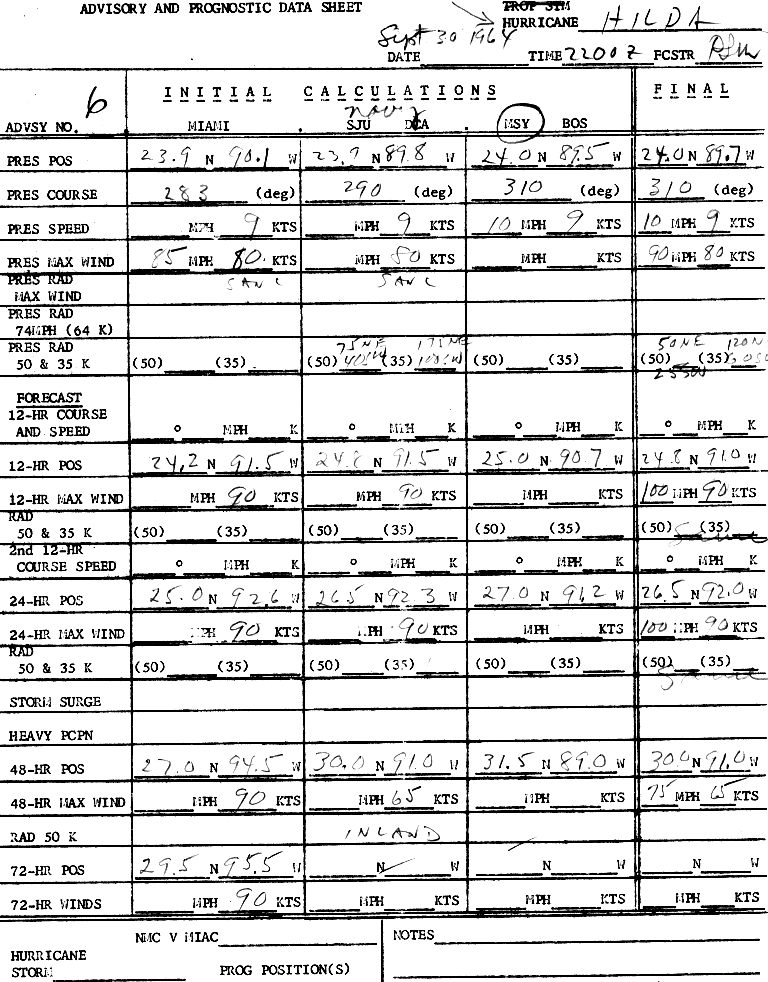 ADVISORY AND PROGNOSTIC DATA SHEET TROP STM
HURRICANE HILDA
Sept 30 1964
DATE TIME 2200Z FCSTR
6 INITIAL CALCULATIONS FINAL
ADVSY NO. MIAMI SJU DCA MSY BOS
PRES POS 23.9 N 90.1 W 23.9 N 89.8 W 24.0 N 89.5 W 24.0 N 89.7 W
PRES COURSE 283 (deg) 290 (deg) 310 (deg) 310 (deg)
PRES SPEED MPH 9 KTS MPH 9 KTS 10 MPH 9 KTS 10 MPH 9 KTS
PRES MAX WIND 85 MPH 80 KTS MPH 80 KTS MPH KTS 90 MPH 80 KTS
PRES RAD
MAX WIND
PRES RAD
74MPH (64 K)
PRES RAD 75NE 175NE 50NE
50 & 35 K (50) (35) (50) 40SW (35) 100SW (50) (35) (50) (35)
25SW
FORECAST
12-HR COURSE
AND SPEED ° MPH K ° MPH K ° MPH K ° MPH K
12-HR POS 24.2 N 91.5 W 24.8 N 91.5 W 25.0 N 90.7 W 24.8 N 91.0 W
12-HR MAX WIND MPH 90 KTS MPH 90 KTS MPH KTS 100 MPH 90 KTS
RAD
50 & 35 K (50) (35) (50) (35) (50) (35) (50) (35)
2nd 12-HR
COURSE SPEED ° MPH K ° MPH K ° MPH K ° MPH K
24-HR POS 25.0 N 92.6 W 26.5 N 92.3 W 27.0 N 91.2 W 26.5 N 92.0 W
24-HR MAX WIND MPH 90 KTS MPH 90 KTS MPH KTS 100 MPH 90 KTS
RAD
50 & 35 K (50) (35) (50) (35) (50) (35) (50) (35)
STORM SURGE
HEAVY PCPN
48-HR POS 27.0 N 94.5 W 30.0 N 91.0 W 31.5 N 89.0 W 30.0 N 91.0 W
48-HR MAX WIND MPH 90 KTS MPH 65 KTS MPH KTS 75 MPH 65 KTS
RAD 50 K INLAND
72-HR POS 29.5 N 95.5 W N W N W N W
72-HR WINDS MPH 90 KTS MPH KTS MPH KTS MPH KTS
NMC V MIAC NOTES
HURRICANE
STORM PROG POSITION(S)